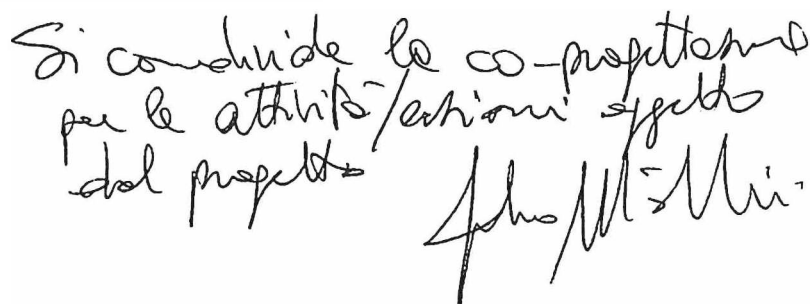 Si condivide la co-progettazione
per le attività/azioni oggetto
del progetto